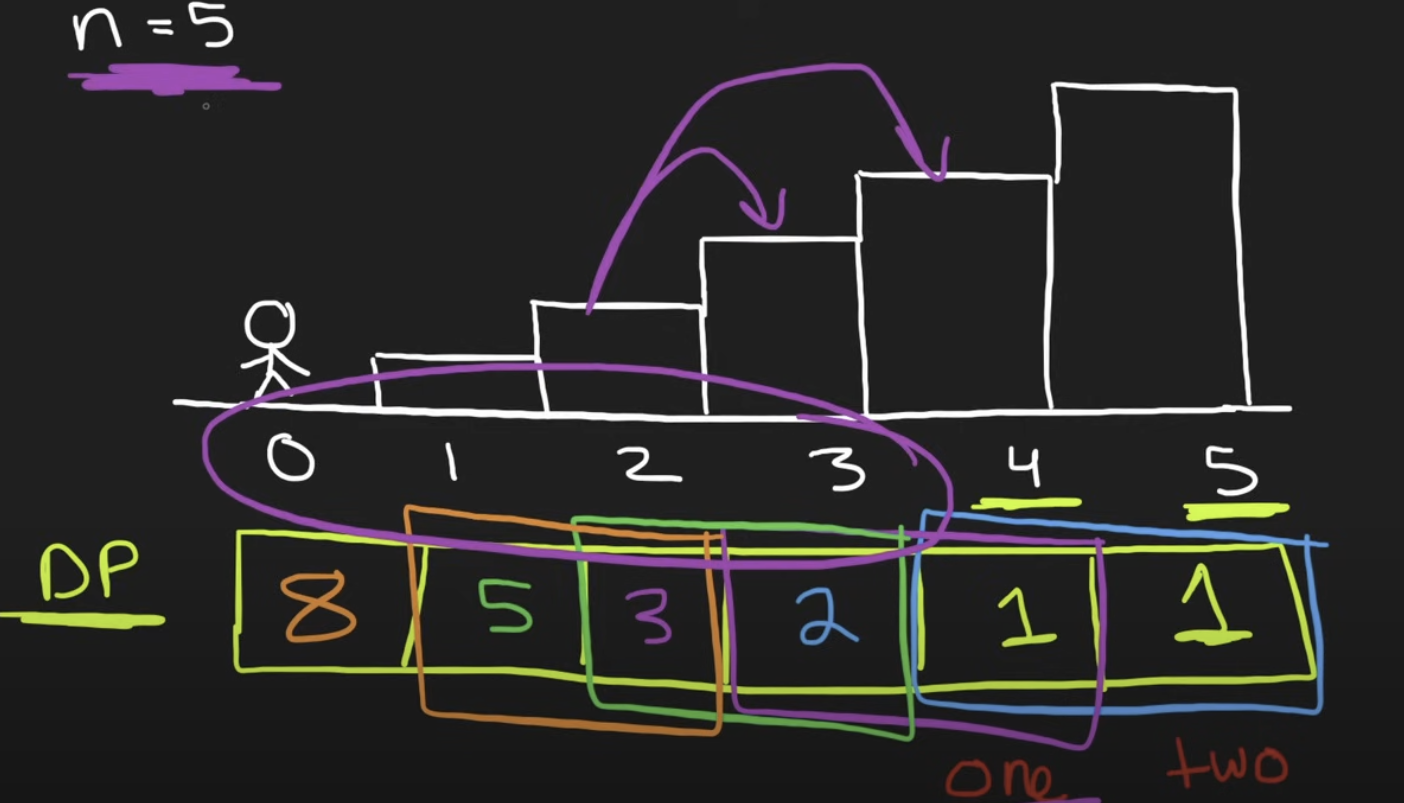 n = 5
0 1 2 3 4 5
DP 8 5 3 2 1 1
one two